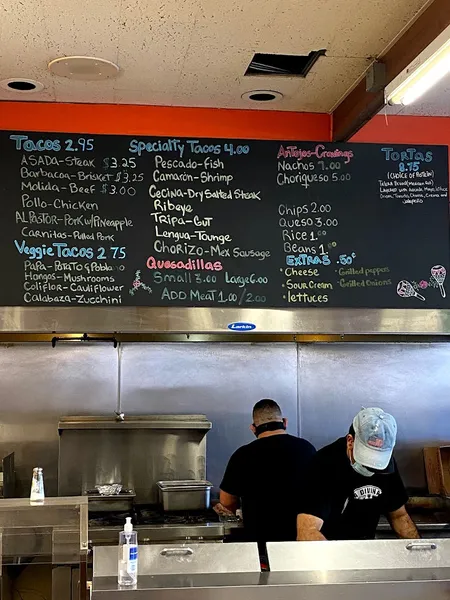 Tacos 2.95
ASADA-Steak $3.25
Barbacoa-Brisket $3.25
Molida-Beef $3.00
Pollo-Chicken
AL PASTOR-Pork w/Pineapple
Carnitas-Pulled Pork
Veggie Tacos 2.75
Papa-Potato & Poblano
Hongos-Mushrooms
Coliflor-Cauliflower
Calabaza-Zucchini
Specialty Tacos 4.00
Pescado-fish
Camarón-Shrimp
Cecina-Dry Salted Steak
Ribeye
Tripa-Gut
Lengua-Tounge
Chorizo-Mex Sausage
Quesadillas
Small 3.00 Large 6.00
Add Meat 1.00/2.00
Antojos-Cravings
Nachos 7.00
Choriqueso 5.00
Chips 2.00
Queso 3.00
Rice 1.00
Beans 1.00
EXTRAS .50¢
*Cheese
*Sour Cream
*lettuces
*Grilled peppers
*Grilled Onions
Tortas
8.75
(CHOICE OF PROTEIN)
Larkin
DIVING